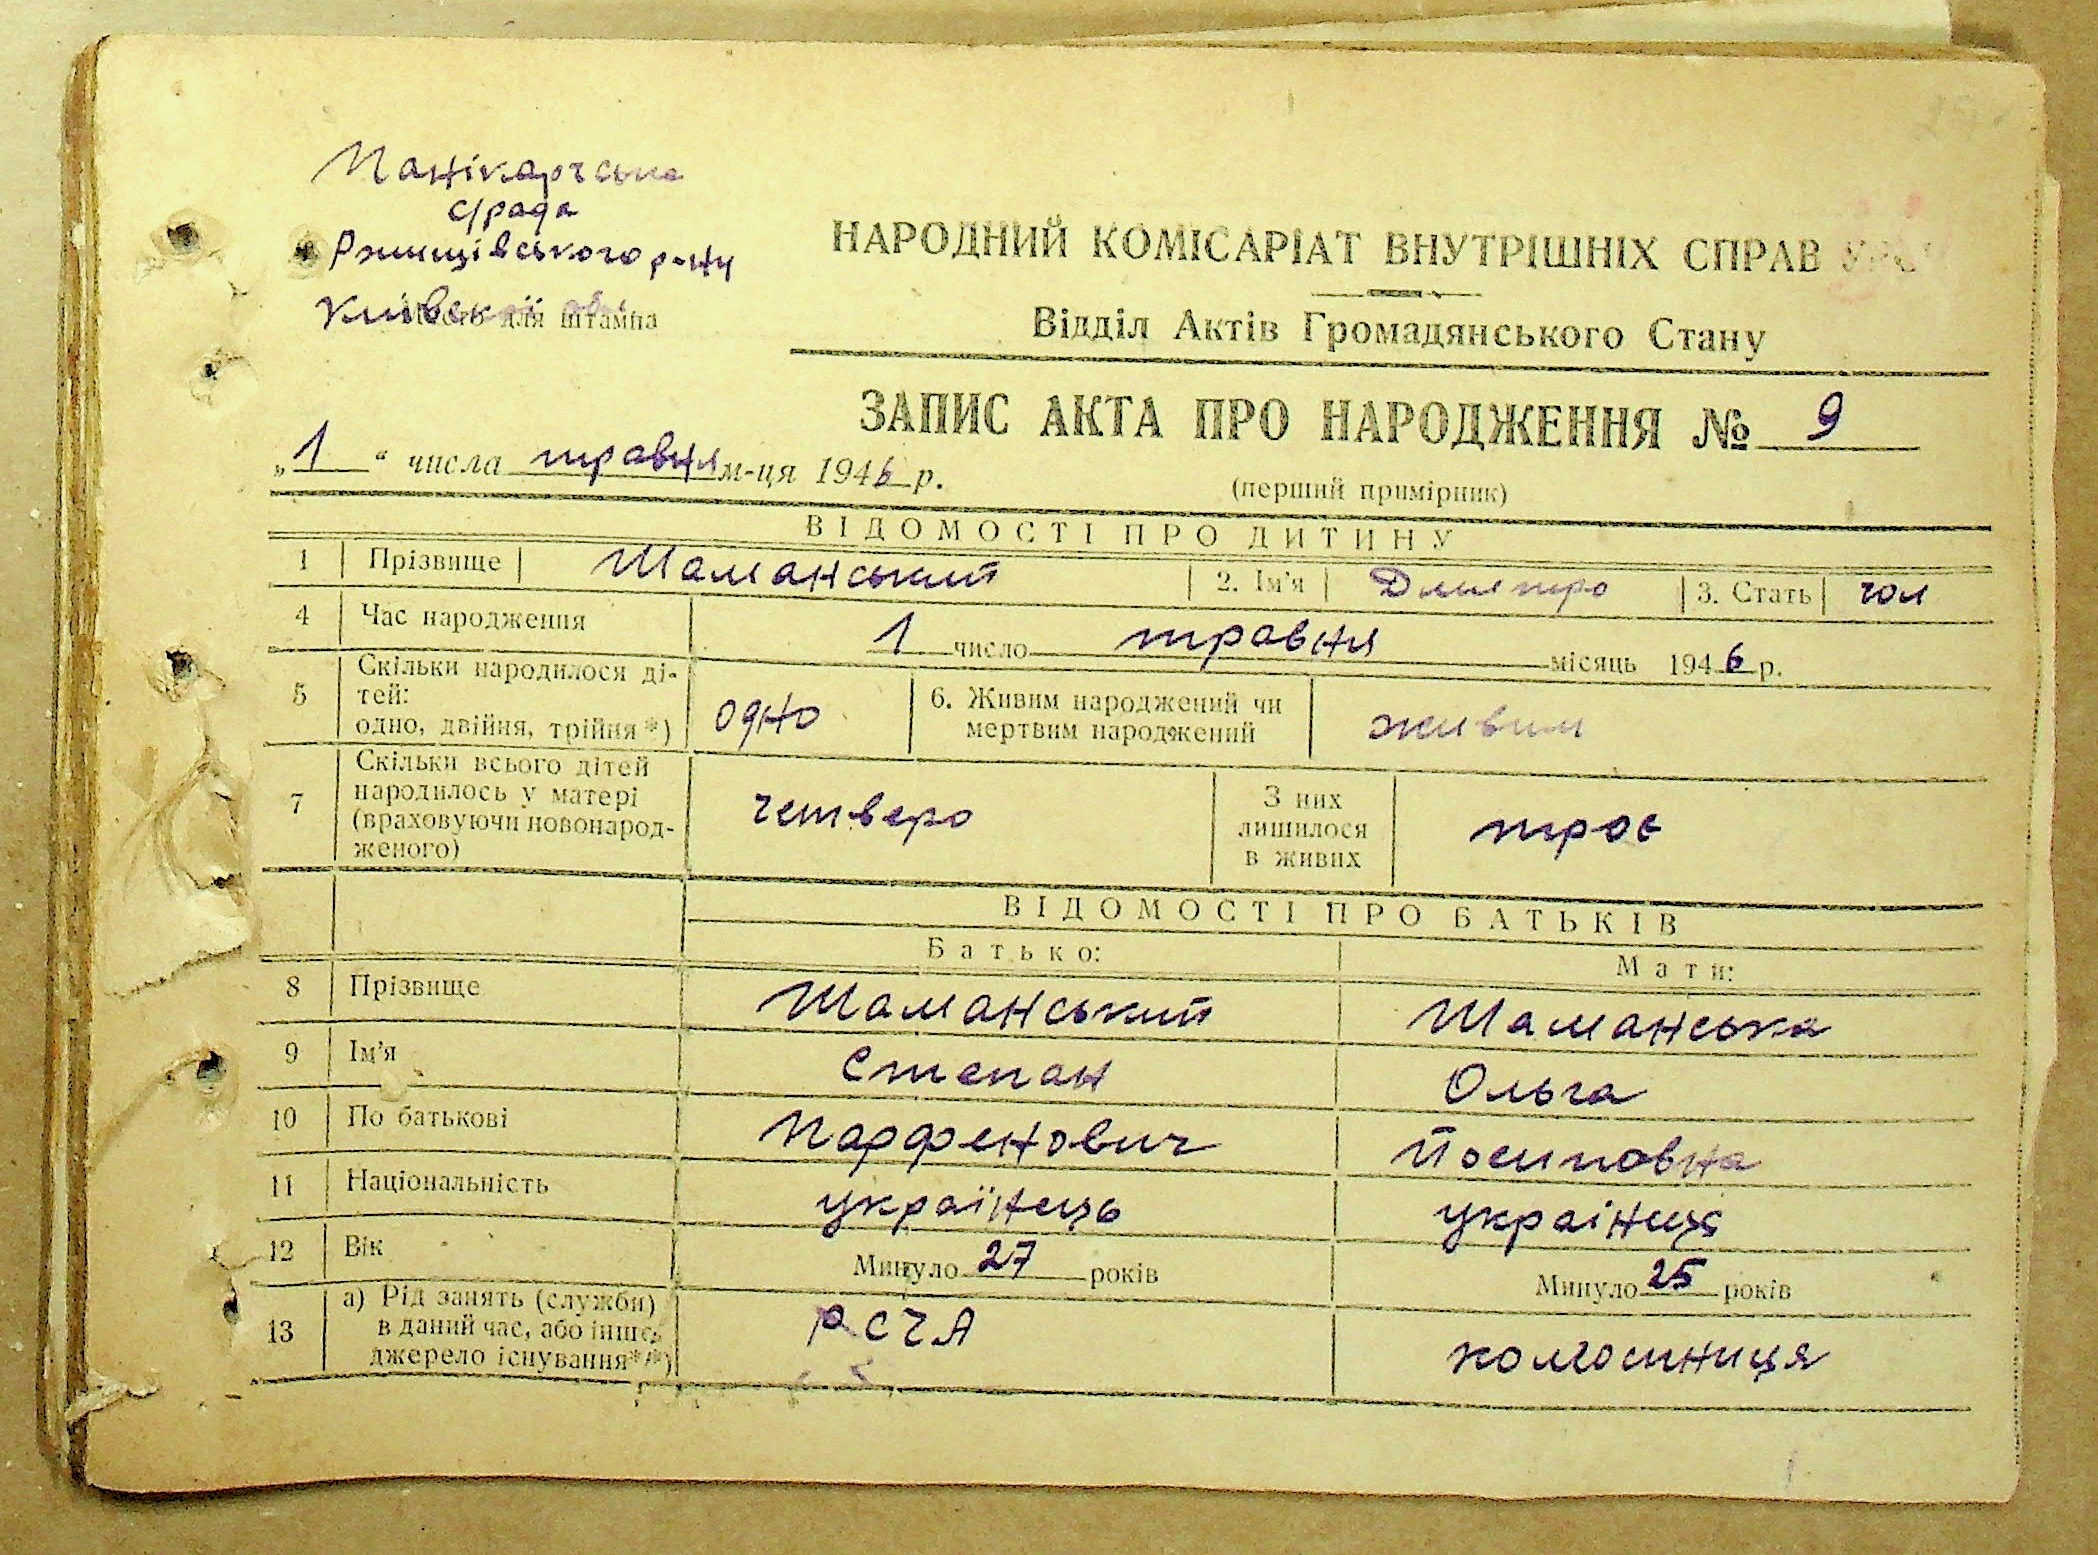 Панікарчська
с/рада
Ржищівського р-ну
Київської обл.
Місце для штампа
НАРОДНИЙ КОМІСАРІАТ ВНУТРІШНІХ СПРАВ УРСР
Відділ Актів Громадянського Стану
ЗАПИС АКТА ПРО НАРОДЖЕННЯ № 9
„1“ числа травня м-ця 1946 р.
(перший примірник)
ВІДОМОСТІ ПРО ДИТИНУ
1 Прізвище Шаманський 2. Ім'я Дмитро 3. Стать чол
4 Час народження 1 число травня місяць 1946 р.
5 Скільки народилося ді-
тей:
одно, двійня, трійня*) одно 6. Живим народжений чи
мертвим народжений живим
7 Скільки всього дітей
народилось у матері
(враховуючи новонарод-
женого) четверо З них
лишилося
в живих троє
ВІДОМОСТІ ПРО БАТЬКІВ
Батько: Мати:
8 Прізвище Шаманський Шаманська
9 Ім'я Степан Ольга
10 По батькові Парфенович Йосиповна
11 Національність українець українця
12 Вік Минуло 27 років Минуло 25 років
13 а) Рід занять (служби)
в даний час, або інше
джерело існування**) РСЧА колгоспниця